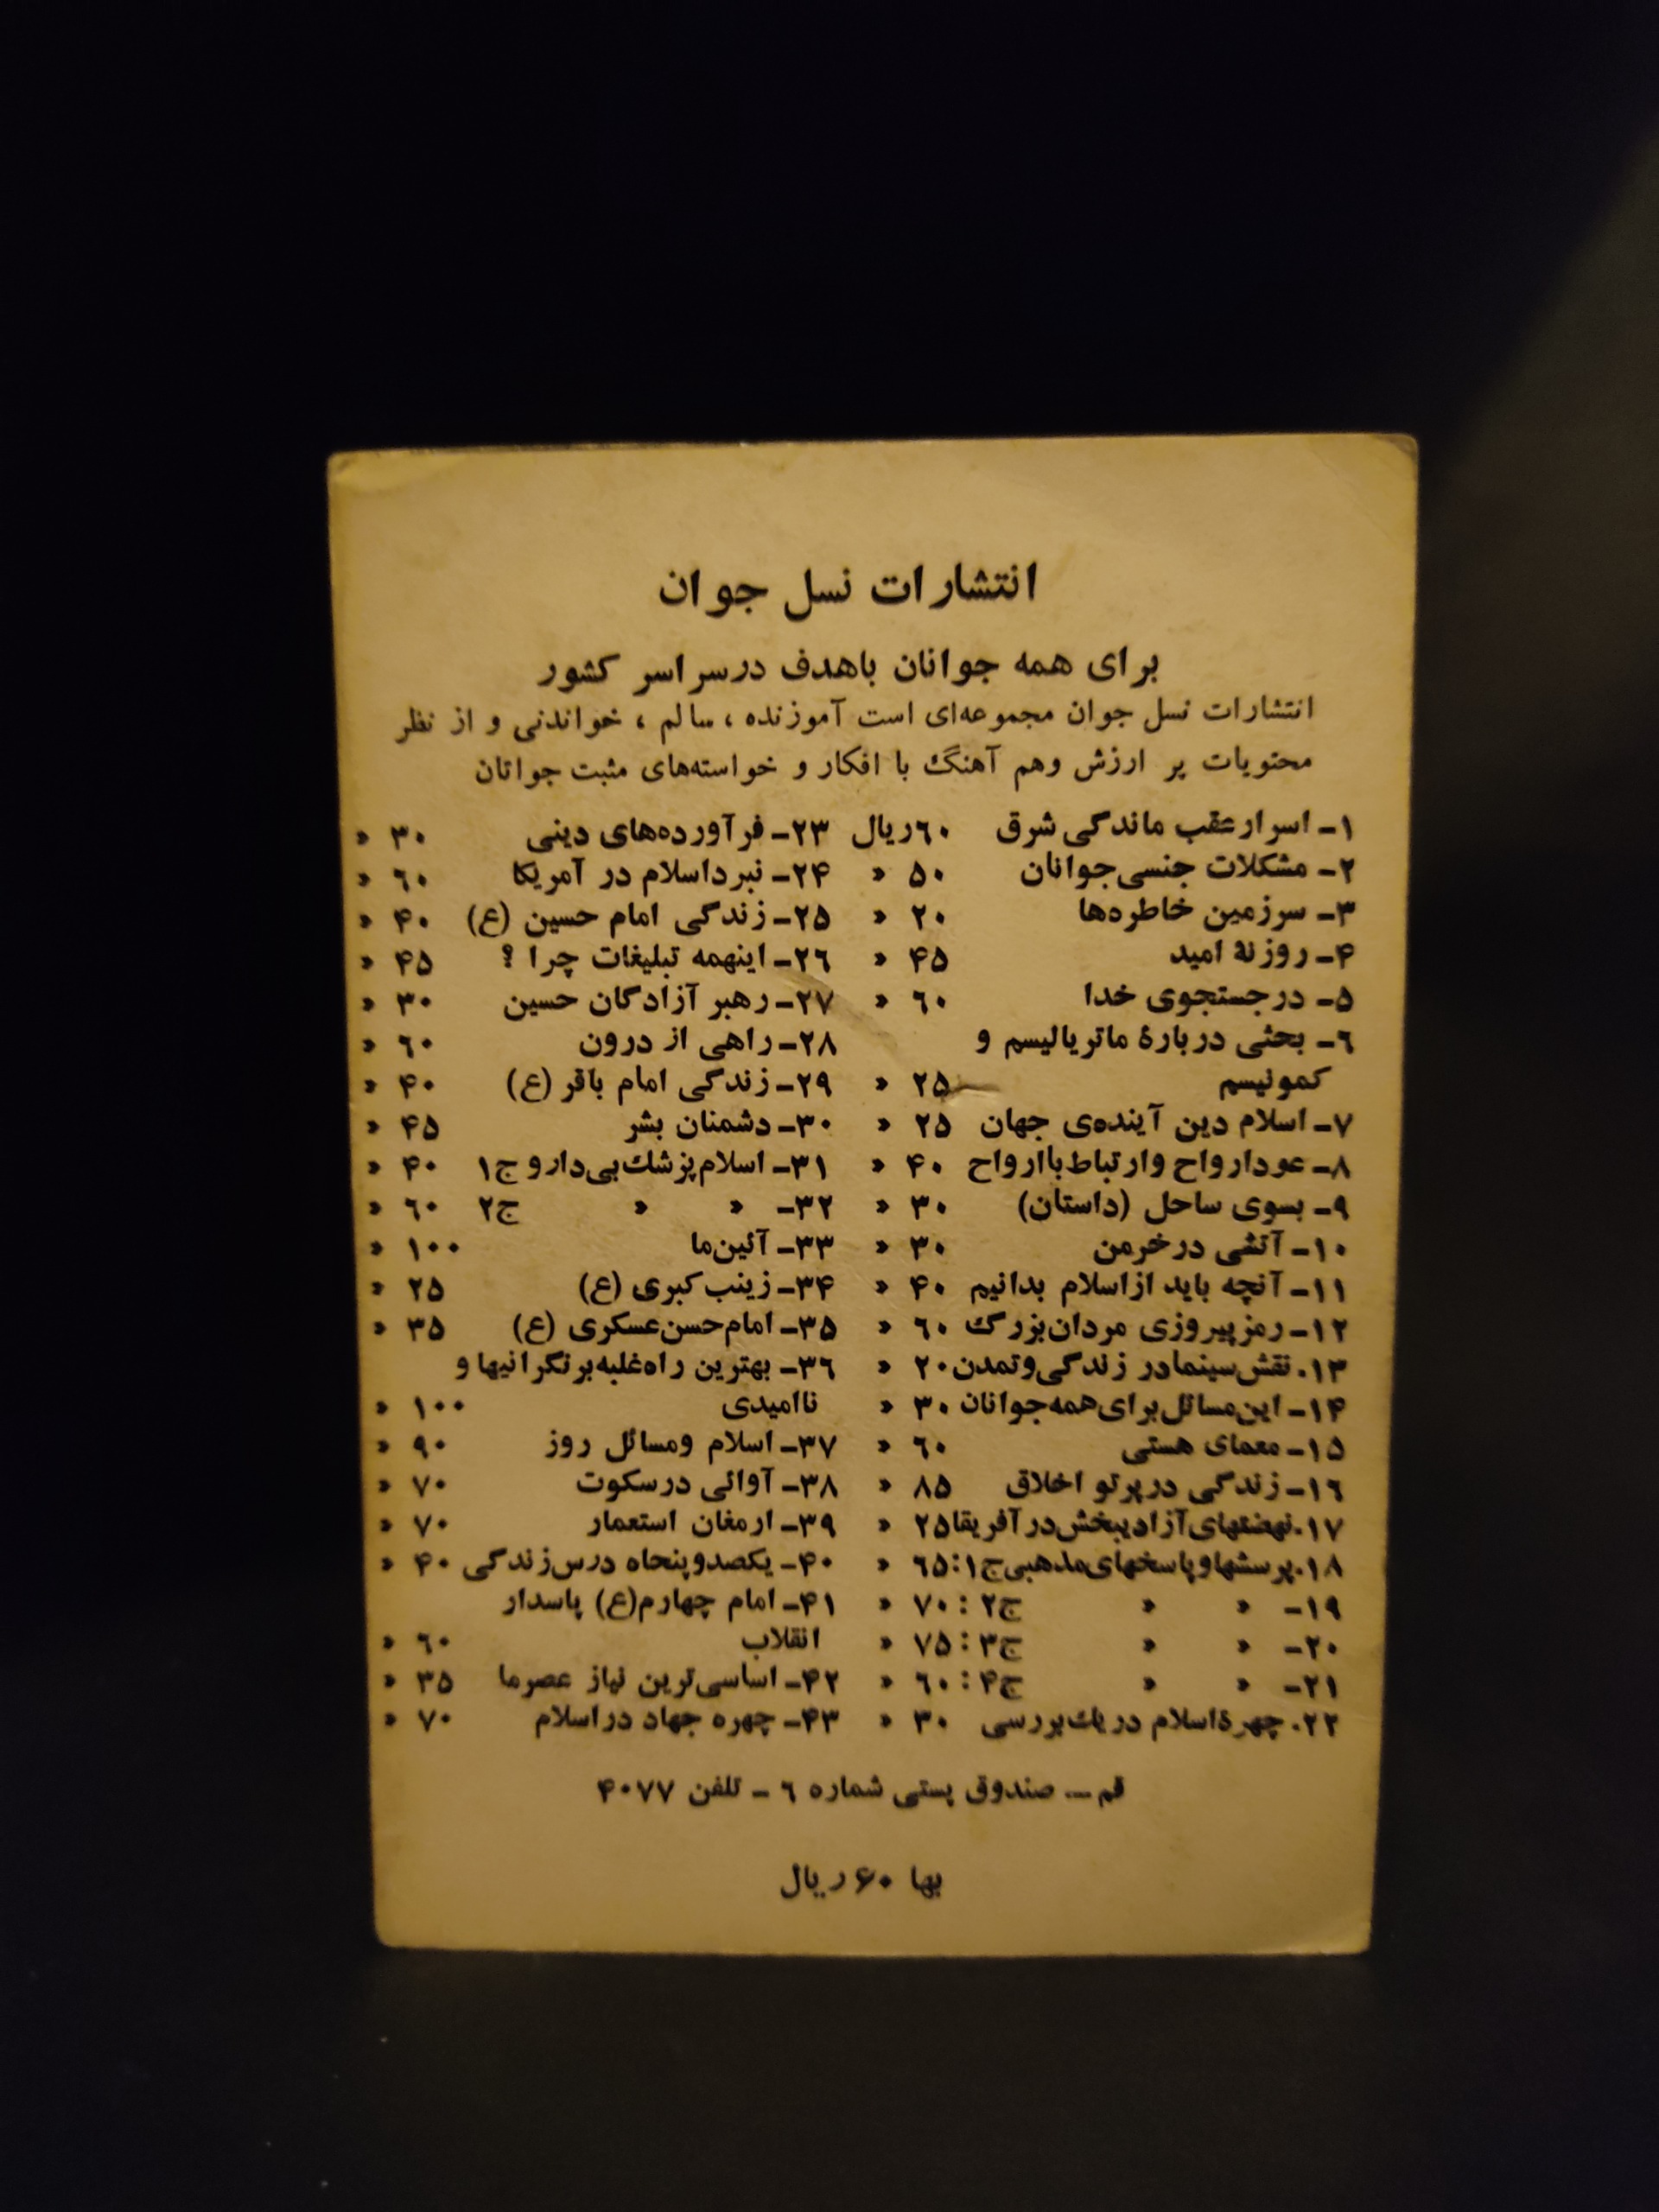 انتشارات نسل جوان
برای همه جوانان باهدف درسراسر کشور
انتشارات نسل جوان مجموعه‌ای است آموزنده ، سالم ، خواندنی و از نظر
محتویات پر ارزش وهم آهنگ با افکار و خواسته‌های مثبت جوانان
۱- اسرار عقب ماندگی شرق ۶۰ ریال
۲- مشکلات جنسی جوانان ۵۰ »
۳- سرزمین خاطره‌ها ۲۰ »
۴- روزنهٔ امید ۴۵ »
۵- درجستجوی خدا ۶۰ »
۶- بحثی دربارهٔ ماتریالیسم و
کمونیسم ۲۵ »
۷- اسلام دین آینده‌ی جهان ۲۵ »
۸- عود ارواح وارتباط باارواح ۴۰ »
۹- بسوی ساحل (داستان) ۳۰ »
۱۰- آتشی درخرمن ۳۰ »
۱۱- آنچه باید ازاسلام بدانیم ۴۰ »
۱۲- رمز پیروزی مردان بزرگ ۶۰ »
۱۳. نقش سینما در زندگی و تمدن ۲۰ »
۱۴- این مسائل برای همه جوانان ۳۰ »
۱۵- معمای هستی ۶۰ »
۱۶- زندگی در پرتو اخلاق ۸۵ »
۱۷. نهضتهای آزادیبخش در آفریقا ۲۵ »
۱۸. پرسشها و پاسخهای مذهبی ج۱: ۶۵ »
۱۹- » » ج۲ : ۷۰ »
۲۰- » » ج۳ : ۷۵ »
۲۱- » » ج۴ : ۶۰ »
۲۲. چهرهٔ اسلام دریک بررسی ۳۰ »
۲۳- فرآورده‌های دینی ۳۰ »
۲۴- نبرد اسلام در آمریکا ۶۰ »
۲۵- زندگی امام حسین (ع) ۴۰ »
۲۶- اینهمه تبلیغات چرا ؟ ۴۵ »
۲۷- رهبر آزادگان حسین ۳۰ »
۲۸- راهی از درون ۶۰ »
۲۹- زندگی امام باقر (ع) ۴۰ »
۳۰- دشمنان بشر ۴۵ »
۳۱- اسلام پزشک بی‌دارو ج۱ ۴۰ »
۳۲- » » ج۲ ۶۰ »
۳۳- آئین ما ۱۰۰ »
۳۴- زینب کبری (ع) ۲۵ »
۳۵- امام حسن عسکری (ع) ۳۵ »
۳۶- بهترین راه غلبه بر نگرانیها و
ناامیدی ۱۰۰ »
۳۷- اسلام ومسائل روز ۹۰ »
۳۸- آوائی درسکوت ۷۰ »
۳۹- ارمغان استعمار ۷۰ »
۴۰- یکصدوپنجاه درس زندگی ۴۰ »
۴۱- امام چهارم(ع) پاسدار
انقلاب ۶۰ »
۴۲- اساسی‌ترین نیاز عصرما ۳۵ »
۴۳- چهره جهاد در اسلام ۷۰ »
قم ـ صندوق پستی شماره ۶ ـ تلفن ۴۰۷۷
بها ۶۰ ریال